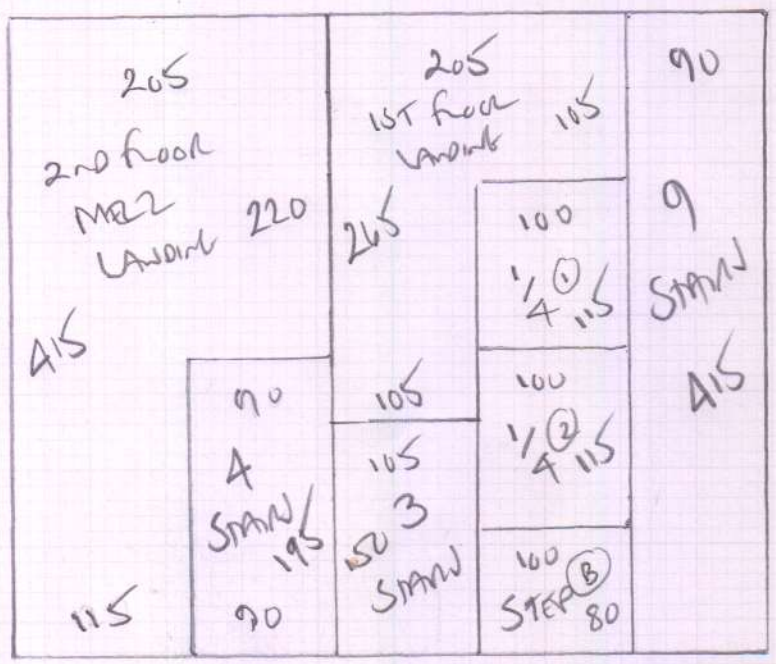 205
2ND FLOOR
MEZZ
LANDING
220
415
115
90
4
STAIRS
195
90
205
1ST FLOOR
LANDING
105
265
105
105
3
150
STAIRS
100
1/4 ① 115
100
1/4 ② 115
100
STEP Ⓑ
80
90
9
STAIRS
415